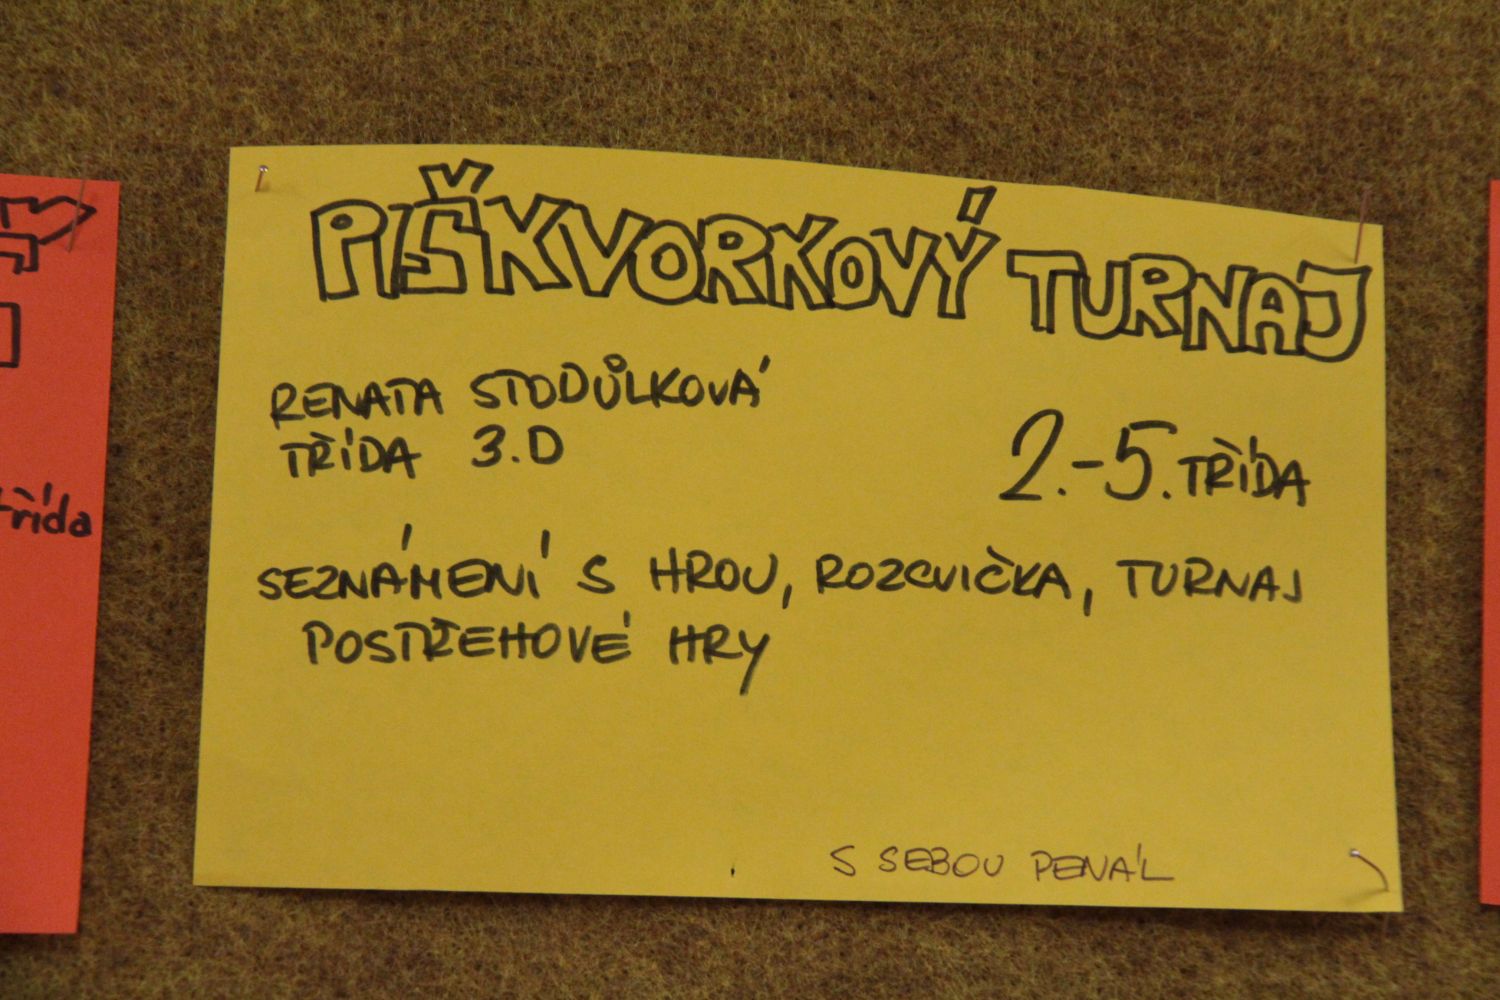 PIŠKVORKOVÝ TURNAJ
RENATA STODŮLKOVÁ
TŘÍDA 3.D
2.-5. TŘÍDA
SEZNÁMENÍ S HROU, ROZCVIČKA, TURNAJ
POSTŘEHOVÉ HRY
S SEBOU PENÁL
třída